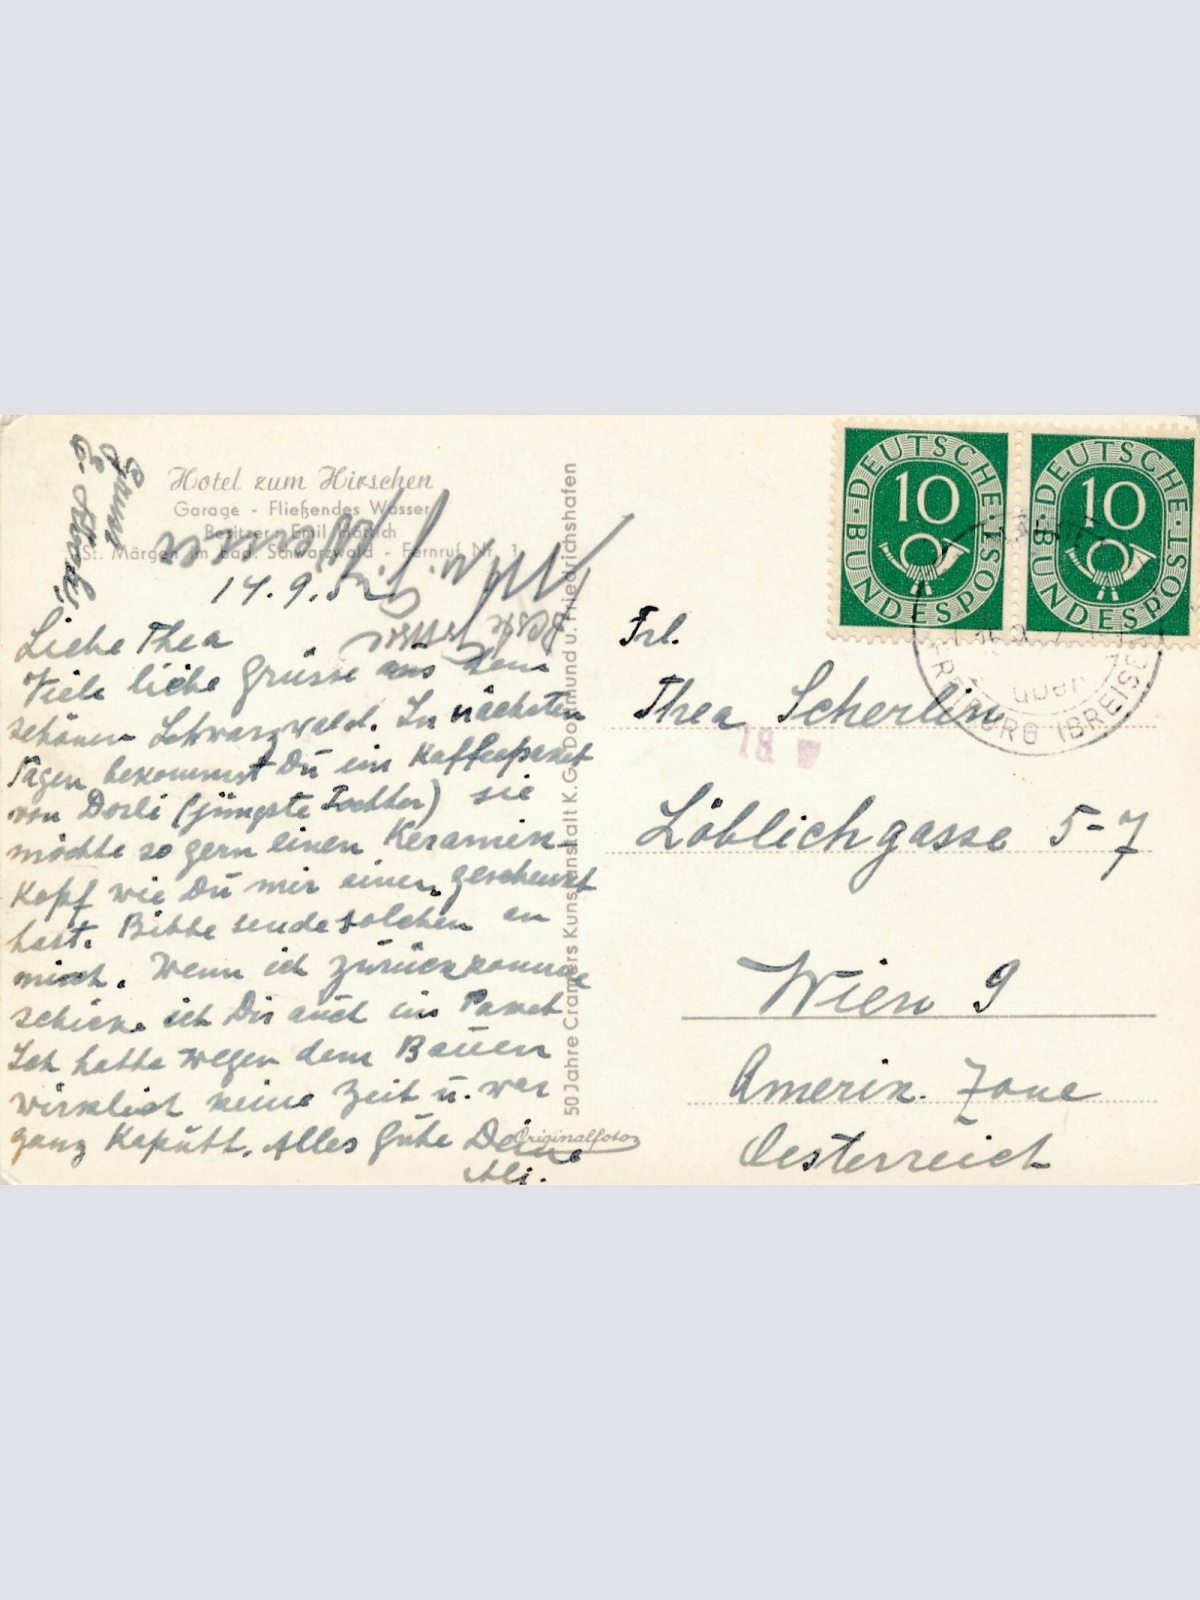 Hotel zum Hirschen
Garage - Fließendes Wasser
Besitzer: Emil
St. Märgen im bad. Schwarzwald - Fernruf Nr. 1
14.9.52
Liebe Thea
Viele liebe Grüsse aus dem
schönen Schwarzwald. In nächsten
Tagen bekommst Du ein Kaffeepaket
von Dorli (jüngste Tochter) sie
möchte so gern einen Keramik-
Kopf wie Du mir einen geschenkt
hast. Bitte sende solchen an
mich. Wenn ich zurückkomme
schicke ich Dir auch ein Paket
Ich hatte wegen dem Bauen
wirklich keine Zeit u. war
ganz kaputt. Alles Gute Deine
50 Jahre Cramers Kunstanstalt K.G. Dortmund u. Friedrichshafen
Originalfoto
DEUTSCHE BUNDESPOST
10
DEUTSCHE BUNDESPOST
10
FREIBURG (BREISG
Frl.
Thea Scherlin
18
Löblichgasse 5-7
Wien 9
Amerik. Zone
Oesterreich